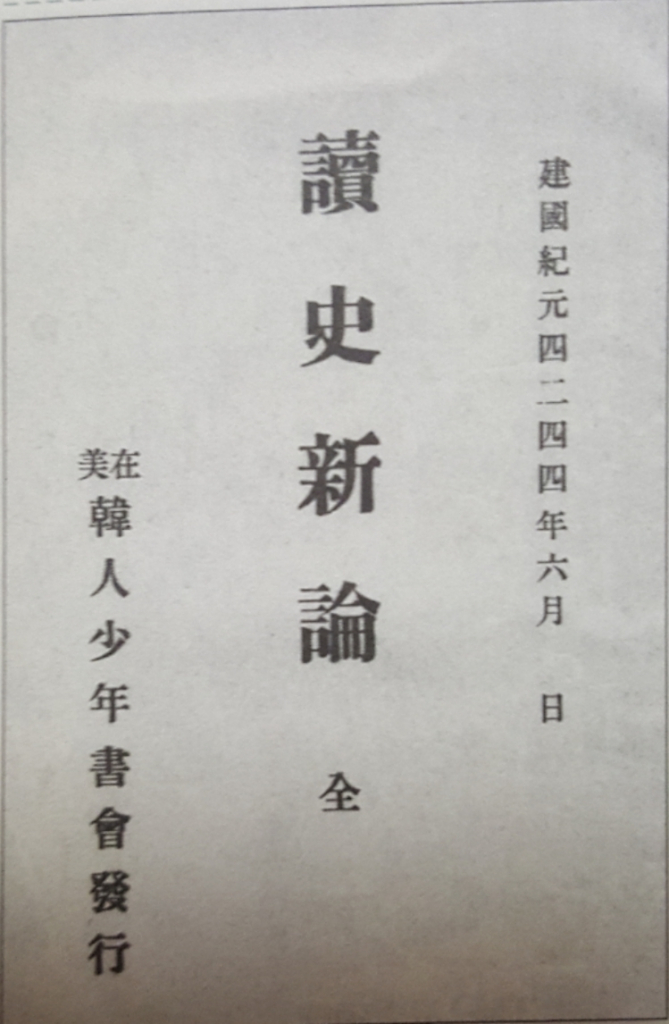 建國紀元四二四四年六月 日
讀史新論 全
在美韓人少年書會發行